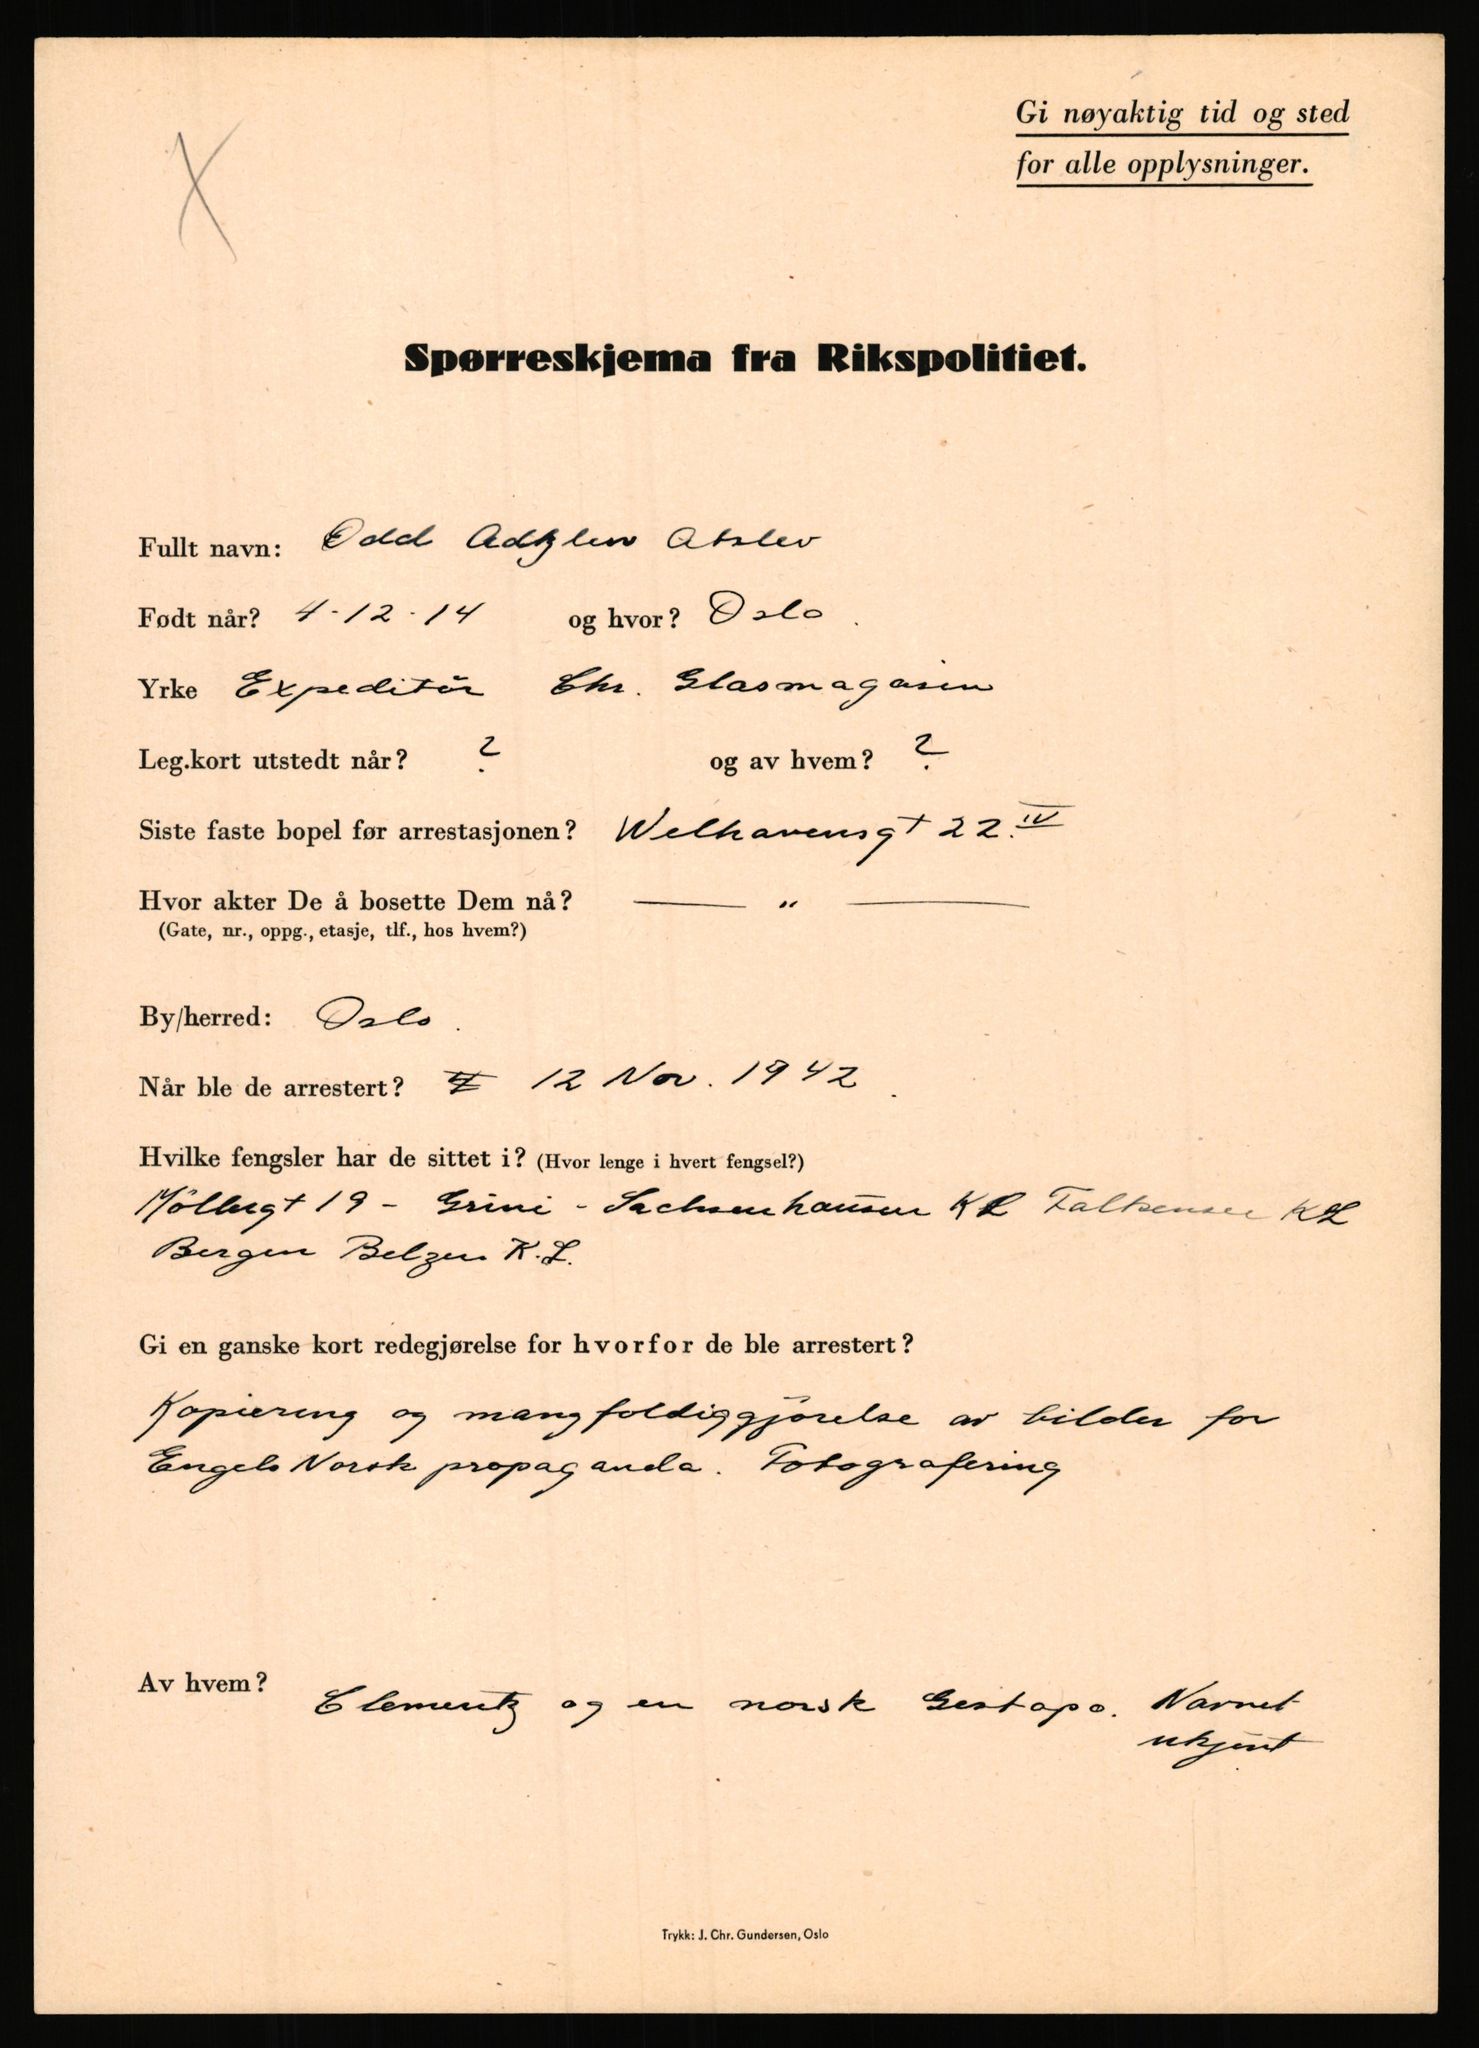 Gi nøyaktig tid og sted
for alle opplysninger.
Spørreskjema fra Rikspolitiet.
Fullt navn: Odd Atslev
Født når? 4-12-14 og hvor? Oslo.
Yrke Expeditör Chr. Glasmagasin
Leg.kort utstedt når? ? og av hvem? ?
Siste faste bopel før arrestasjonen? Welhavensgt 22. IV
Hvor akter De å bosette Dem nå? — " —
(Gate, nr., oppg., etasje, tlf., hos hvem?)
By/herred: Oslo.
Når ble de arrestert? 12 Nov. 1942.
Hvilke fengsler har de sittet i? (Hvor lenge i hvert fengsel?)
Möllergt 19 - Grini - Sachsenhausen KL Falkensee KL
Bergen Belzen K.L.
Gi en ganske kort redegjørelse for hvorfor de ble arrestert?
Kopiering og mangfoldiggjörelse av bilder for
Engels Norsk propaganda. Fotografering
Av hvem? Clementz og en norsk Gestapo. Navnet
ukjent
Trykk: J. Chr. Gundersen, Oslo